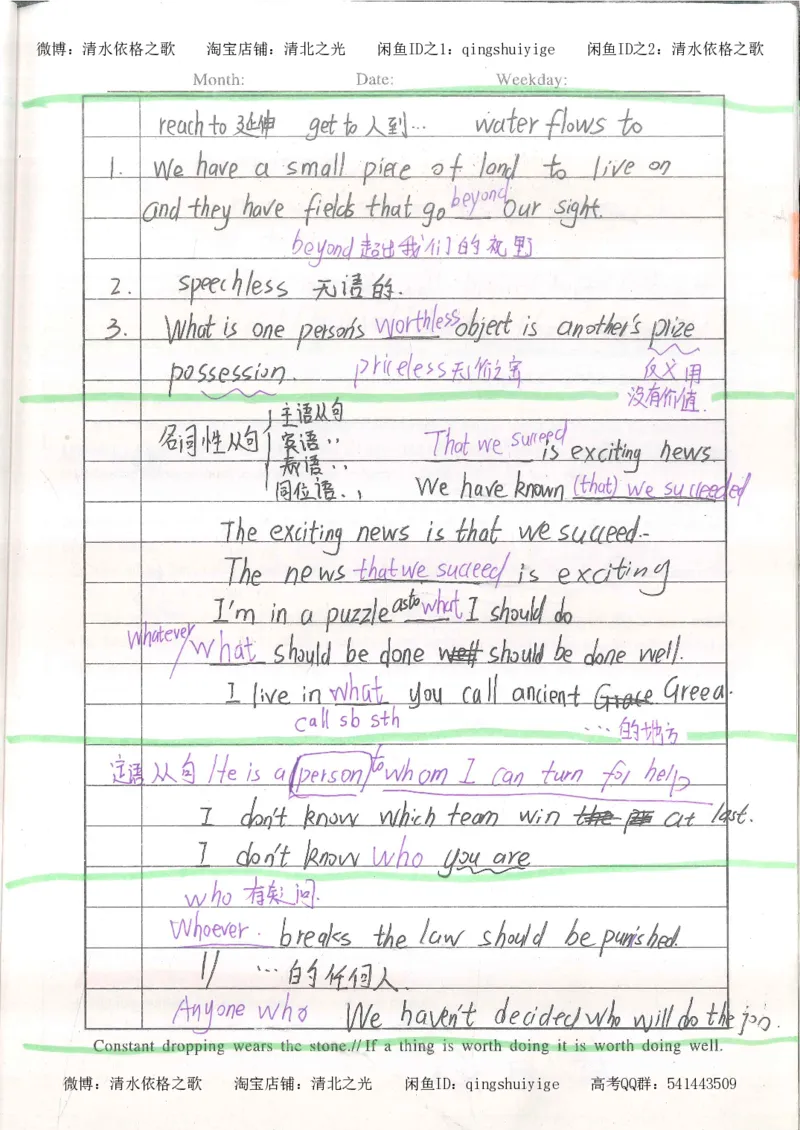 微博：清水依格之歌 淘宝店铺：清北之光 闲鱼ID之1：qingshuiyige 闲鱼ID之2：清水依格之歌
Month: Date: Weekday:
reach to 延伸 get to 人到… water flows to
1. We have a small piece of land to live on
and they have fields that go beyond our sight.
beyond 超出我们的视野
2. speechless 无语的.
3. What is one person's worthless object is another's prize
possession. priceless 无价之宝 反义用
没有价值.
名词性从句 主语从句
宾语〃 That we succeed is exciting news.
表语〃
同位语〃 We have known (that) we succeeded
The exciting news is that we succeed.
The news that we succeed is exciting
I'm in a puzzle as to what I should do
whatever/what should be done well should be done well.
I live in what you call ancient Greea.
call sb sth …的地方
定语从句 He is a person to whom I can turn for help
I don't know which team win at last.
I don't know who you are
who 有疑问.
Whoever breaks the law should be punished.
〃 …的任何人.
Anyone who We haven't decided who will do the job.
Constant dropping wears the stone.//If a thing is worth doing it is worth doing well.
微博：清水依格之歌 淘宝店铺：清北之光 闲鱼ID：qingshuiyige 高考QQ群：541443509